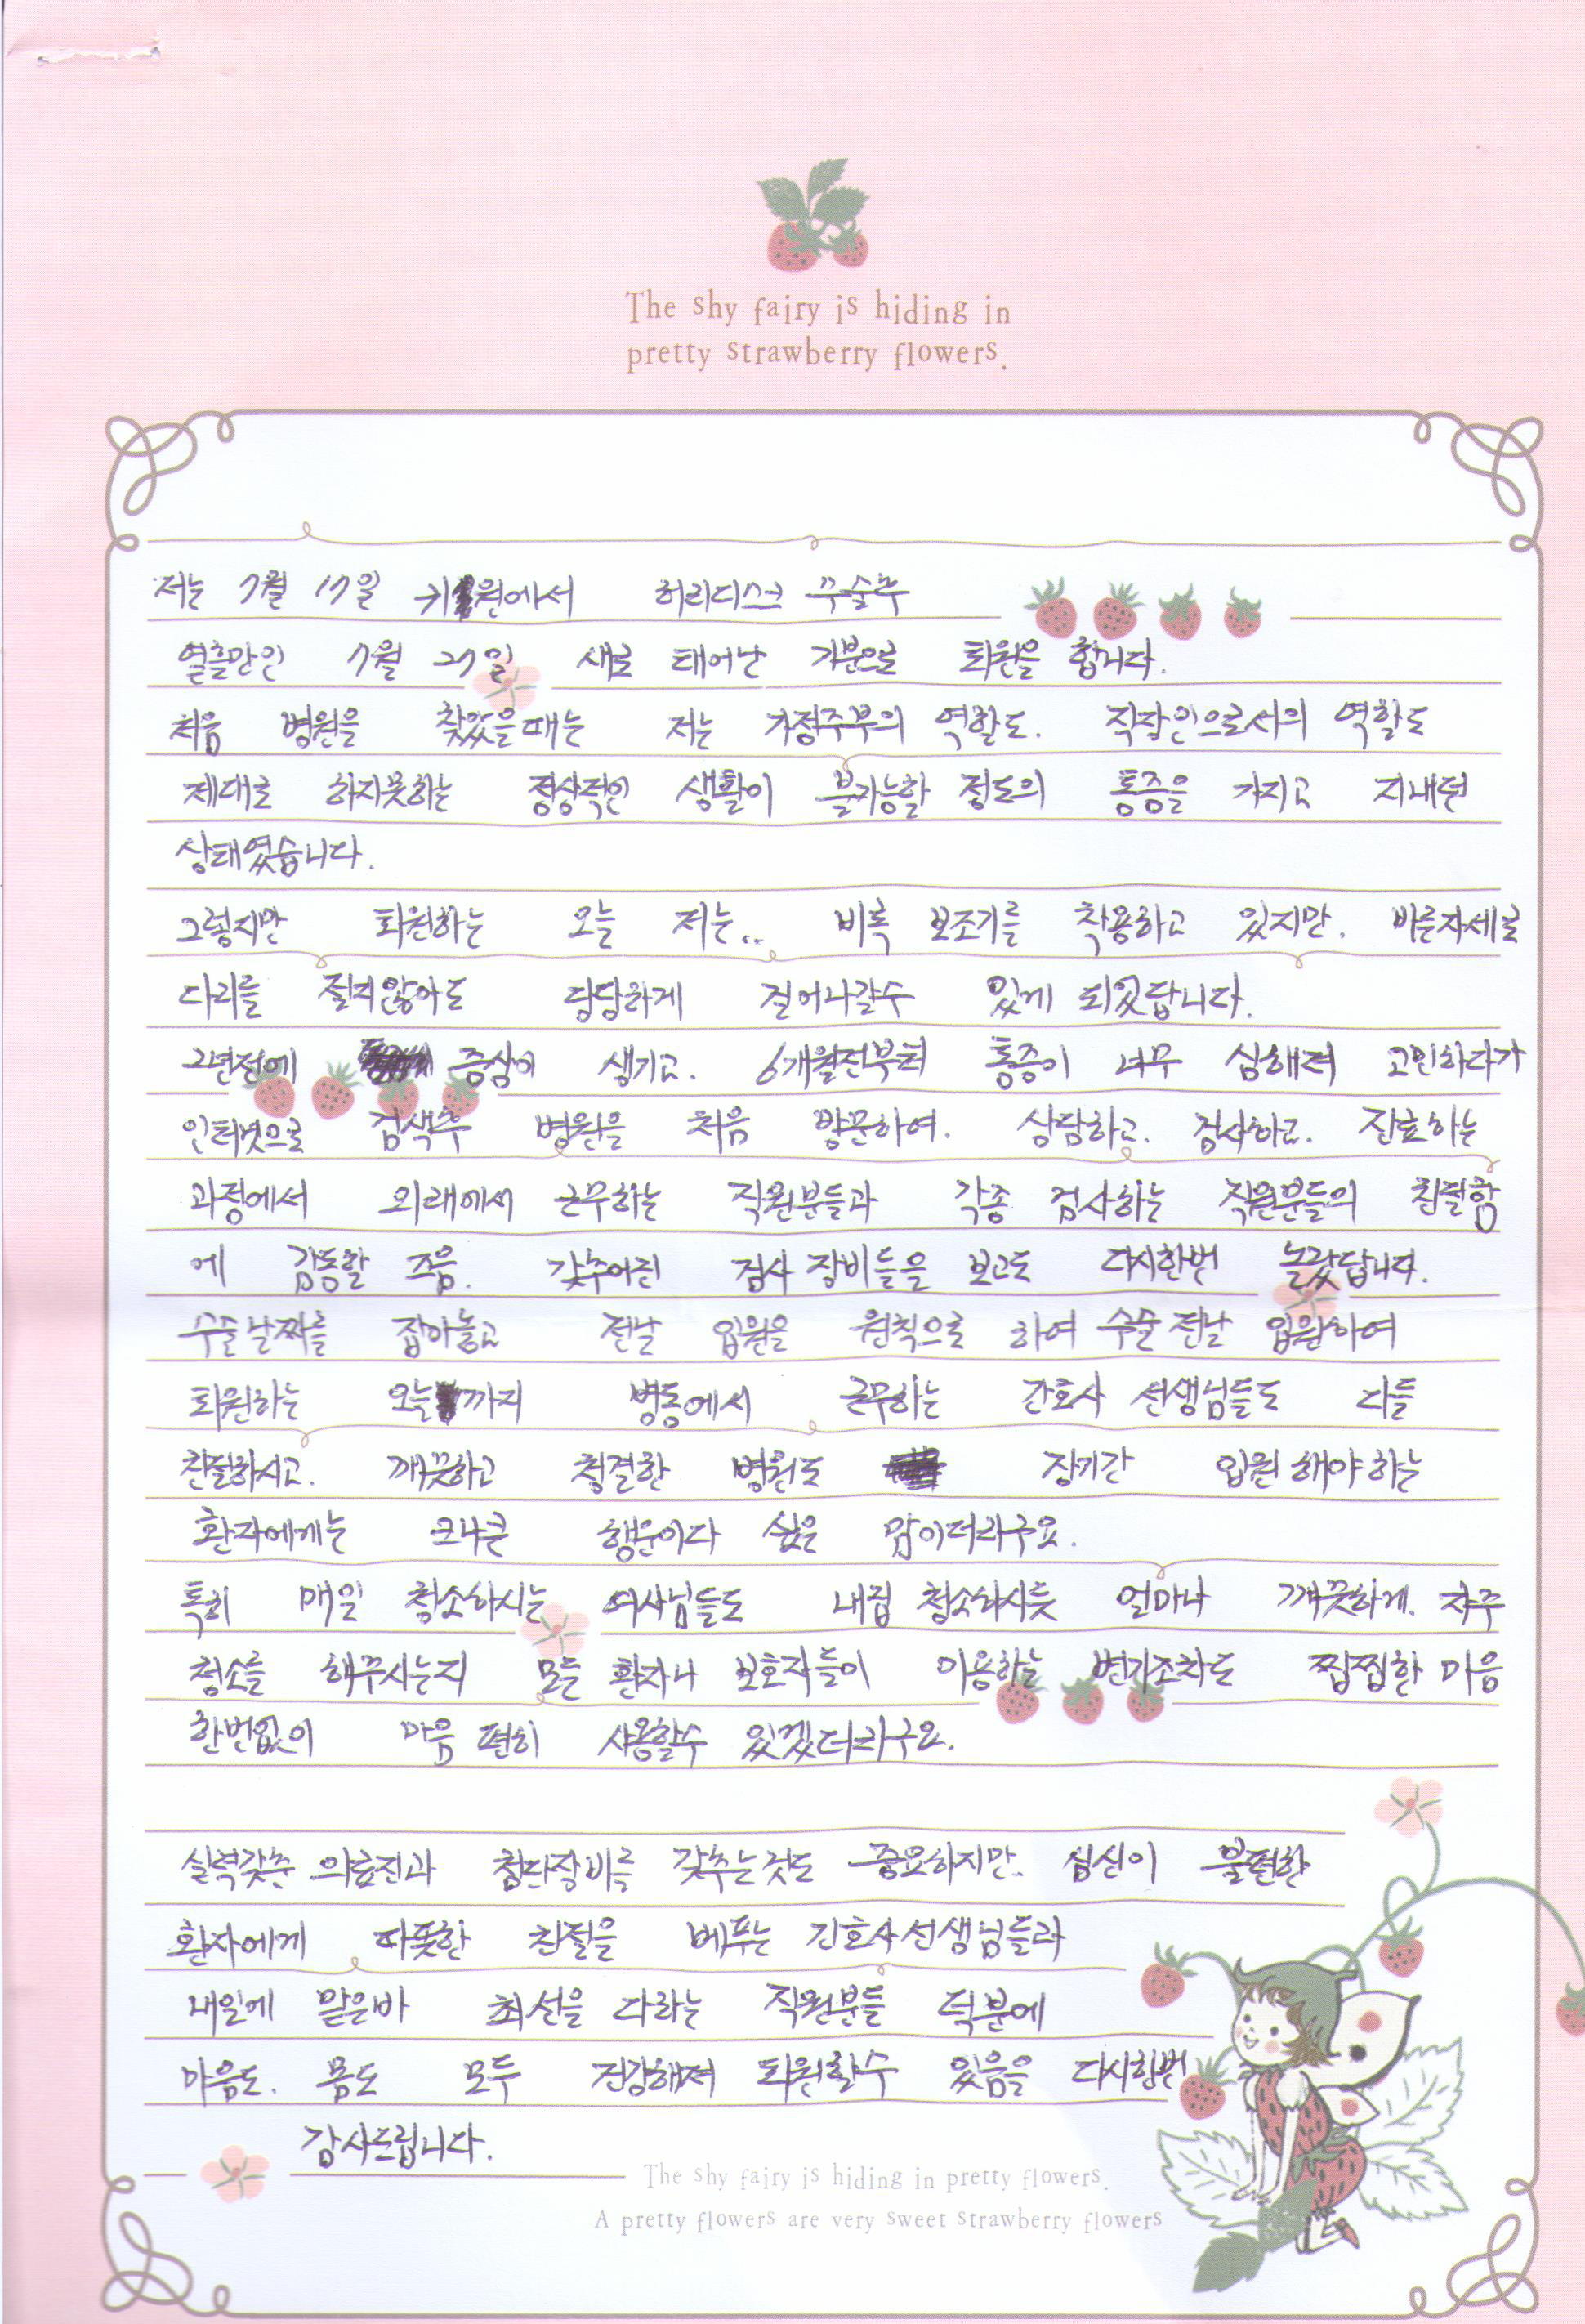 The shy fairy is hiding in
pretty strawberry flowers.
저는 7월 17일 귀원에서 허리디스크 수술후
열흘만인 7월 27일 새로 태어난 기분으로 퇴원을 합니다.
처음 병원을 찾았을때는 저는 가정주부의 역할도. 직장인으로서의 역할도
제대로 하지못하는 정상적인 생활이 불가능할 정도의 통증을 가지고 지내던
상태였습니다.
그렇지만 퇴원하는 오늘 저는.. 비록 보조기를 착용하고 있지만. 바른자세로
다리를 절지않아도 당당하게 걸어나갈수 있게 되었답니다.
2년전에 증상이 생기고. 6개월전부터 통증이 너무 심해져 고민하다가
인터넷으로 검색후 병원을 처음 방문하여. 상담하고. 검사하고. 진료하는
과정에서 외래에서 근무하는 직원분들과 각종 검사하는 직원분들의 친절함
에 감동할 즈음. 갖추어진 검사 장비들을 보고도 다시한번 놀랐답니다.
수술날짜를 잡아놓고 전날 입원을 원칙으로 하여 수술 전날 입원하여
퇴원하는 오늘까지 병동에서 근무하는 간호사 선생님들도 다들
친절하시고. 깨끗하고 청결한 병원도 장기간 입원 해야 하는
환자에게는 크나큰 행운이다 싶은 맘이더라구요.
특히 매일 청소하시는 여사님들도 내집 청소하시듯 얼마나 깨끗하게. 자주
청소를 해주시는지 모든 환자나 보호자들이 이용하는 변기조차도 찝찝한 마음
한번없이 마음 편히 사용할수 있겠더라구요.
실력갖춘 의료진과 첨단장비를 갖추는것도 중요하지만. 심신이 불편한
환자에게 따뜻한 친절을 베푸는 간호사선생님들과
내일에 맡은바 최선을 다하는 직원분들 덕분에
마음도. 몸도 모두 건강해져 퇴원할수 있음을 다시한번
감사드립니다.
The shy fairy is hiding in pretty flowers.
A pretty flowers are very sweet strawberry flowers